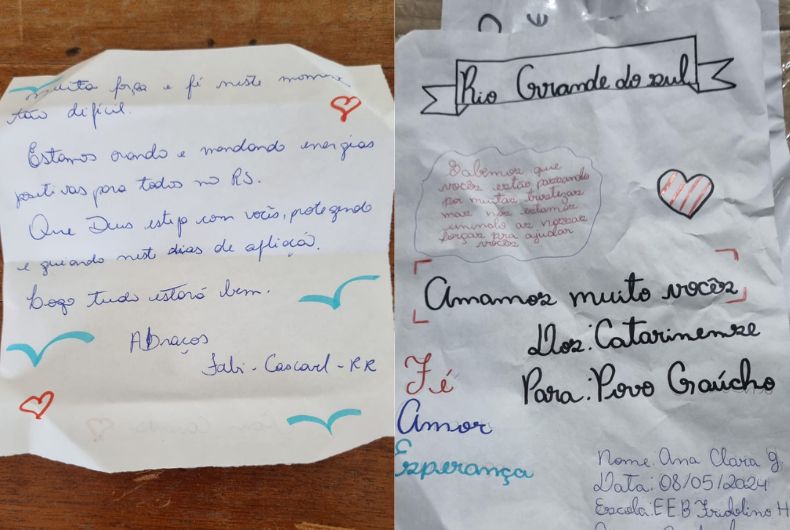 Muita força e fé neste momento
tão difícil.
Estamos orando e mandando energias
positivas para todos no RS.
Que Deus esteja com vocês, protegendo
e guiando nest dias de aflição.
Logo tudo estará bem.
Abraços
Fabi - Cascavel - RR
Rio Grande do sul
Sabemos que
vocês estão passando
por muitas tristezas
mas nós estamos
unindo as nossas
forças pra ajudar
vocês
Amamos muito vocês
Dos: Catarinense
Para: Povo Gaúcho
Fé
Amor
Esperança
Nome: Ana Clara g.
Data: 08/05/2024
Escola: EEB Fridolino H